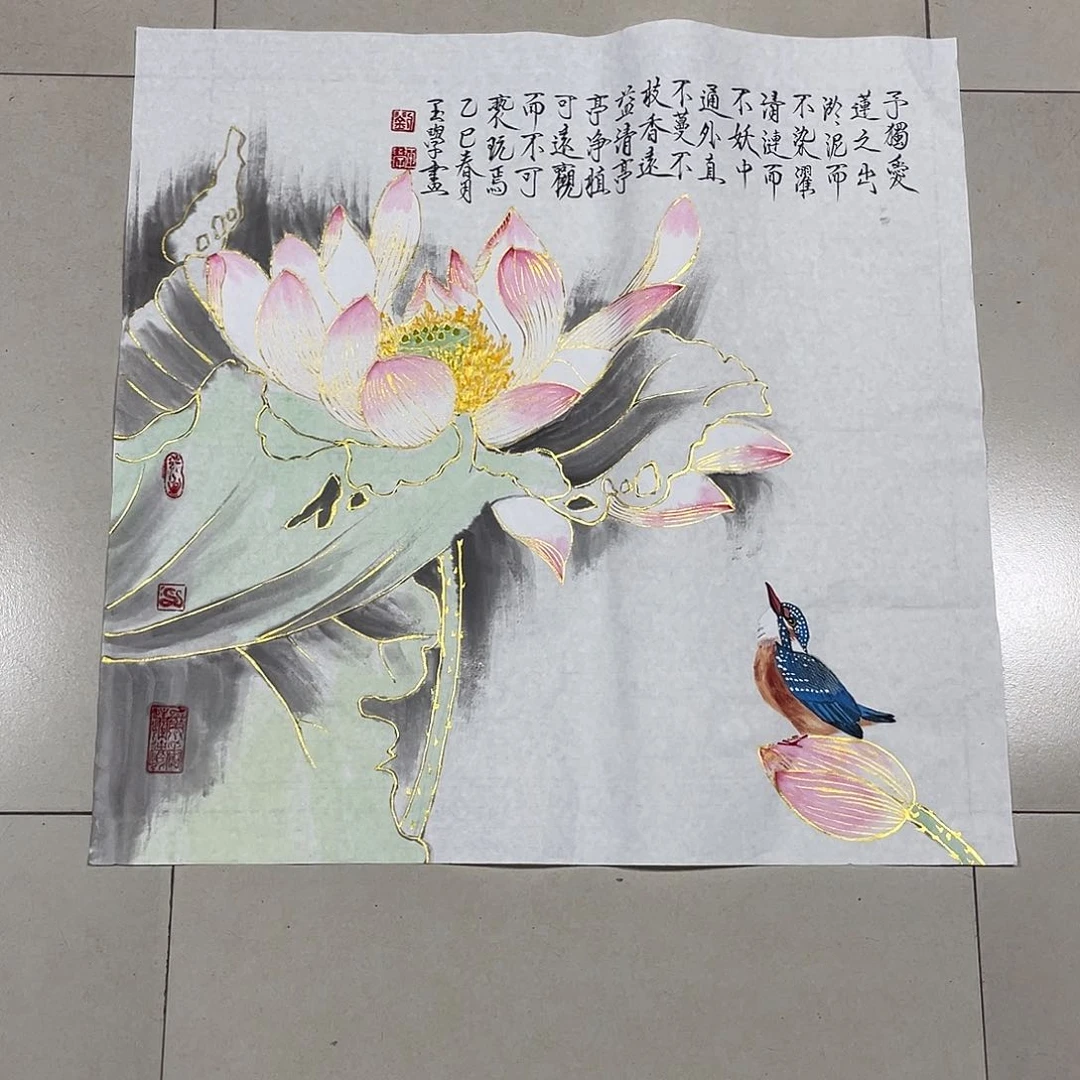 予獨愛
蓮之出
淤泥而
不染濯
清漣而
不妖中
通外直
不蔓不
枝香遠
益清亭
亭净植
可遠觀
而不可
褻玩焉
乙巳春月
玉學畫